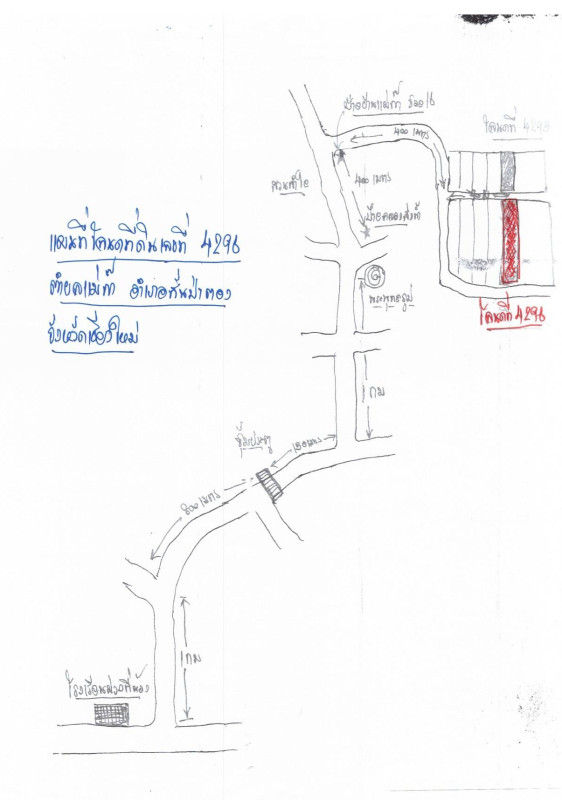 ป้ายบ้านแม่ก๊า ซอย 6
400 เมตร
โฉนดที่ 4296
400 เมตร
สวนลำไย
ป้ายคลองส่งน้ำ
แผนที่โฉนดที่ดินเลขที่ 4296
ตำบลแม่ก๊า อำเภอสันป่าตอง
จังหวัดเชียงใหม่
พระพุทธรูป
โฉนดที่ 4296
1 กม
ซุ้มประตู
150 เมตร
800 เมตร
1 กม